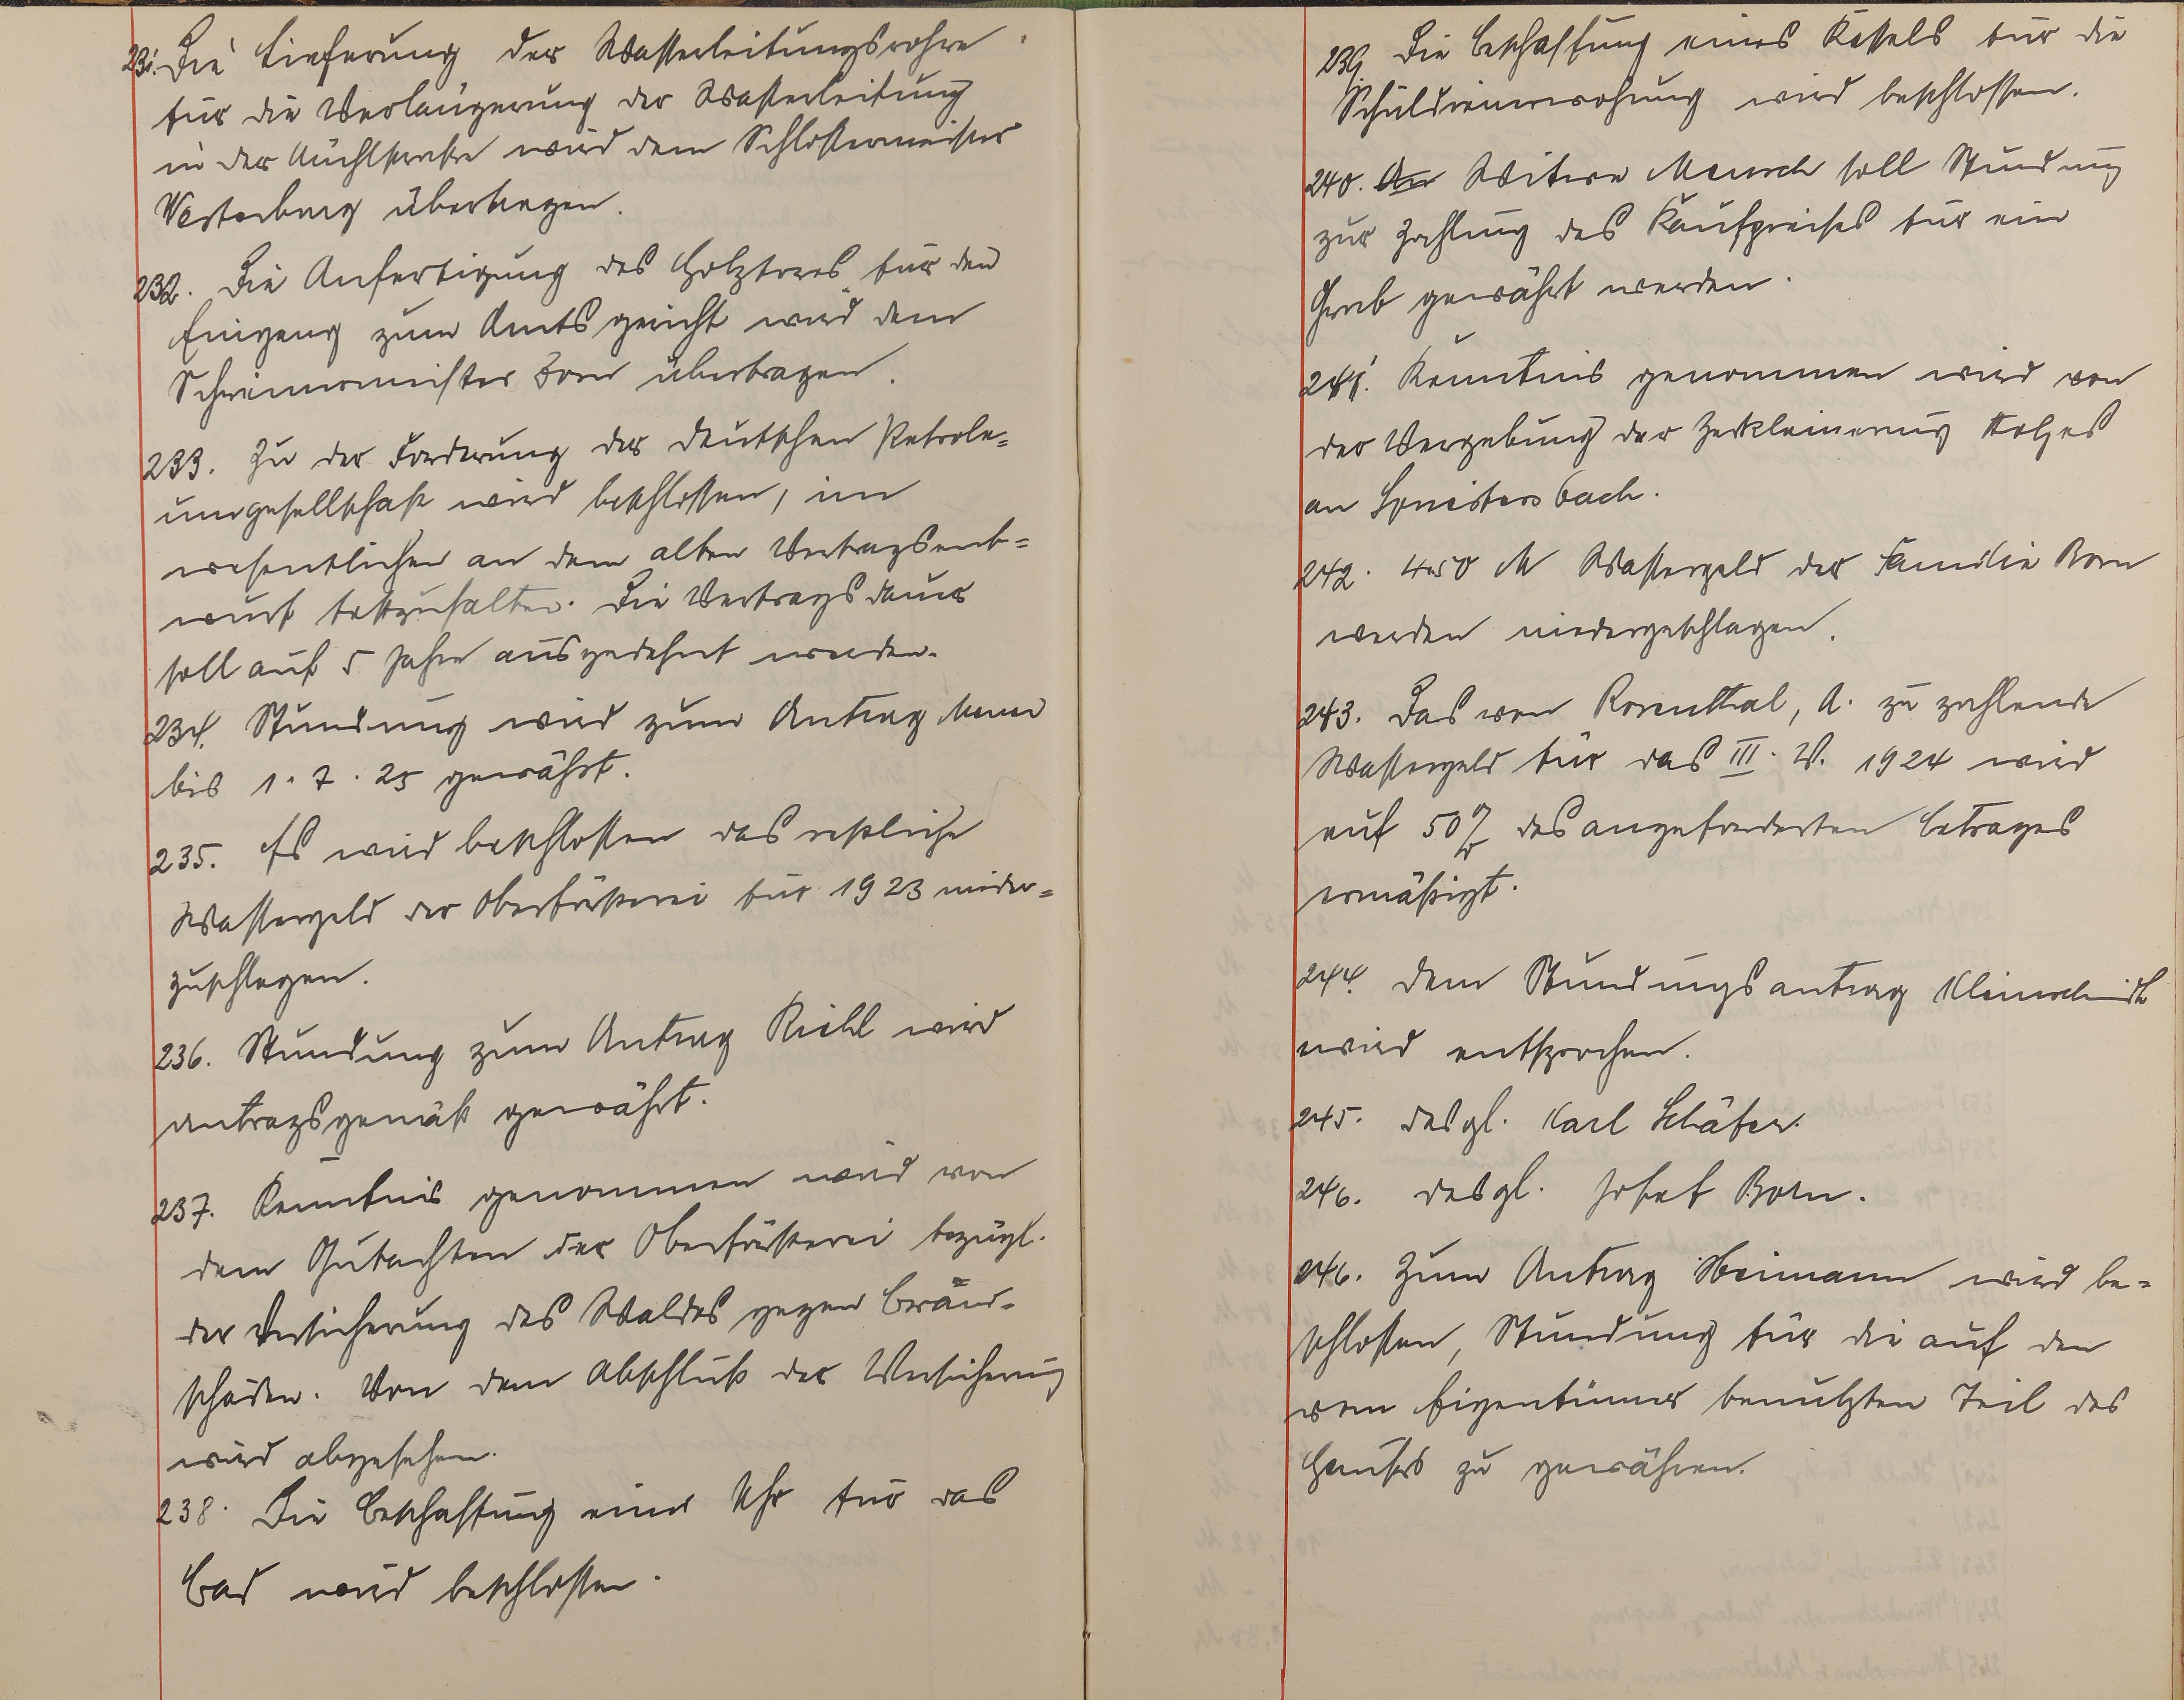 231. Die Lieferung der Wasserleitungsrohre
für die Verlängerung der Wasserleitung
in der Mühlstrasse wird dem Schlossermeister
Westerburg übertragen.
232. Die Anfertigung des Holztores für den
Eingang zum Amtsgericht wird dem
Schreinermeister Born übertragen.
233. Zu der Forderung der deutschen Petrole=
umgesellschaft wird beschlossen, im
wesentlichen an dem alten Vertragsent=
wurf festzuhalten. Die Vertragsdauer
soll auf 5 Jahre ausgedehnt werden.
234. Stundung wird zum Antrag
bis 1. 7. 25 gewährt.
235. Es wird beschlossen das restliche
Wassergeld der Oberförsterei für 1923 nieder=
zuschlagen.
236. Stundung zum Antrag Kiehl wird
antragsgemäß gewährt.
237. Kenntnis genommen wird von
dem Gutachten der Oberförsterei bezügl.
der Versicherung des Waldes gegen Brand=
schäden. Von dem Abschluß der Versicherung
wird abgesehen.
238. Die Beschaffung einer Uhr für das
Bad wird beschlossen.
239. Die Beschaffung eines Kessels für die
Schuldienerwohnung wird beschlossen.
240. Witwe soll Stundung
zur Zahlung des Kaufpreises für ein
Grab gewährt werden.
241. Kenntnis genommen wird von
der Vergebung der Zerkleinerung Holzes
an
242. 4.50 M Wassergeld der Familie Born
werden niedergeschlagen.
243. Das von Rosenthal, A. zu zahlende
Wassergeld für das III. V. 1924 wird
auf 50% des angeforderten Betrages
ermäßigt.
244. Dem Stundungsantrag Kleinschmidt
wird entsprochen.
245. desgl. Karl Schäfer.
246. desgl. Josef Born.
246. Zum Antrag Heimann wird be=
schlossen, Stundung für die auf den
vom Eigentümer benutzten Teil des
Hauses zu gewähren.